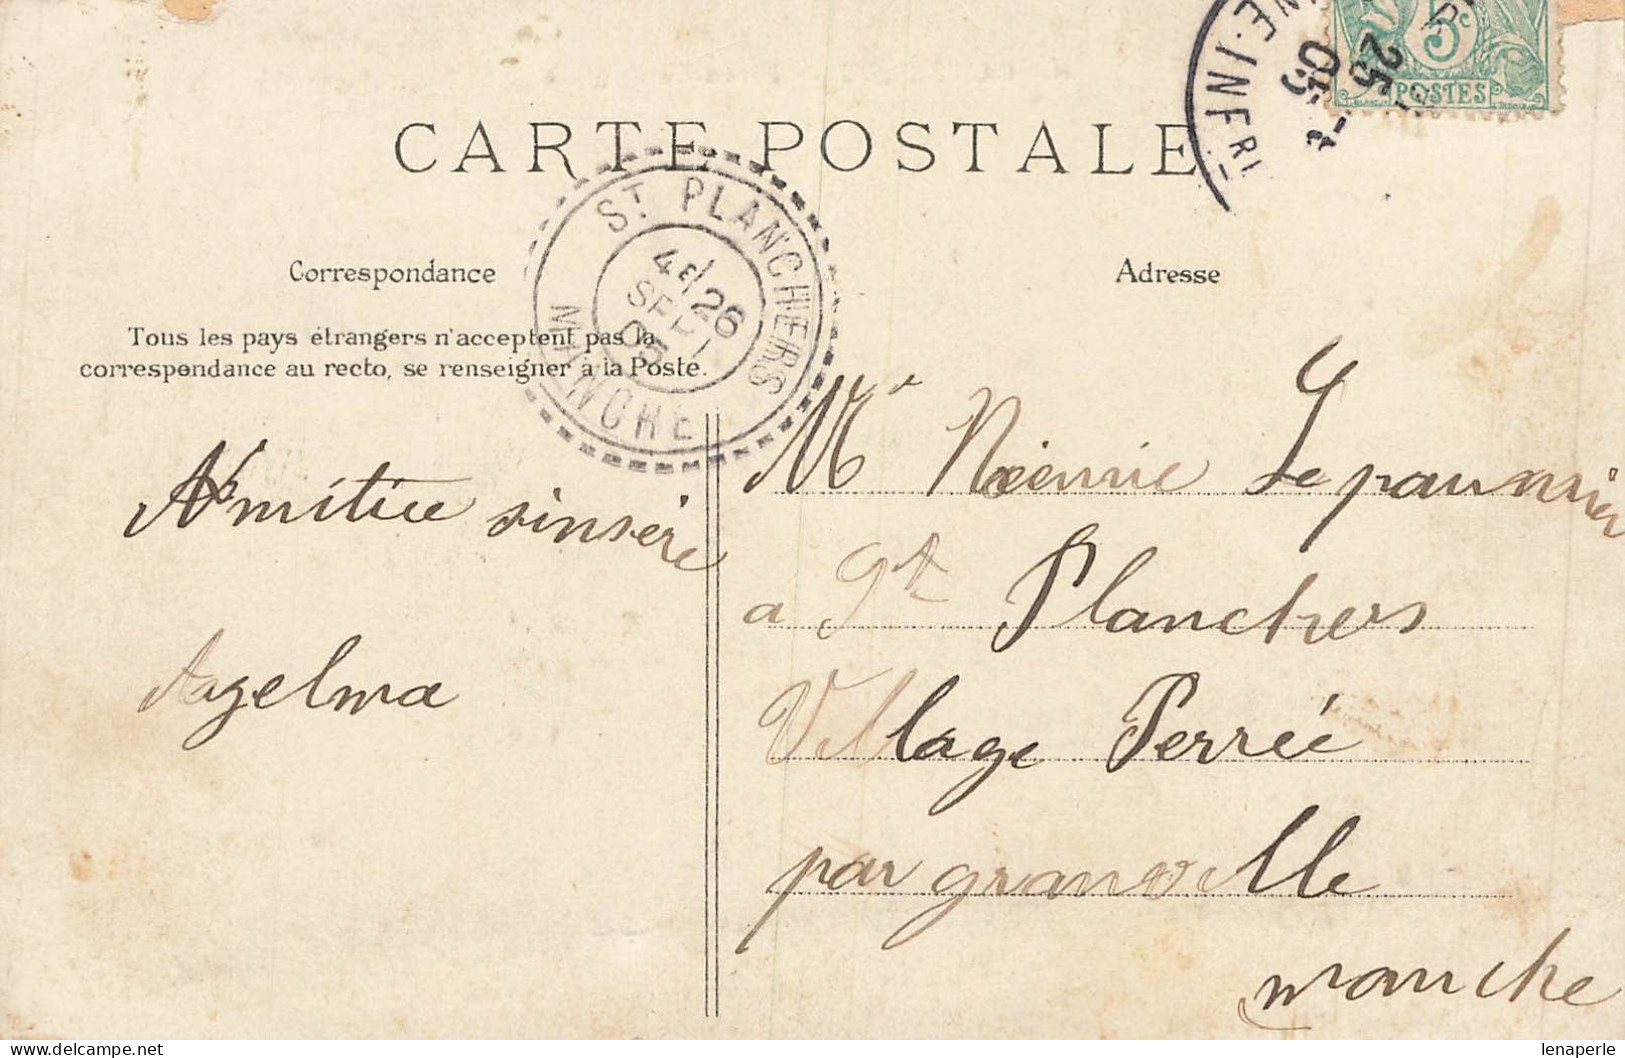 NE-INFRE
25
05
5c
POSTES
CARTE POSTALE
ST PLANCHERS
4E
26
SEPT
05
MANCHE
Correspondance
Adresse
Tous les pays étrangers n'acceptent pas la
correspondance au recto, se renseigner à la Poste.
Amitiee sinsère
Azelma
Mr Néemie Lepaumier
a St Planchers
Village Perrée
par granville
manche
lenaperle